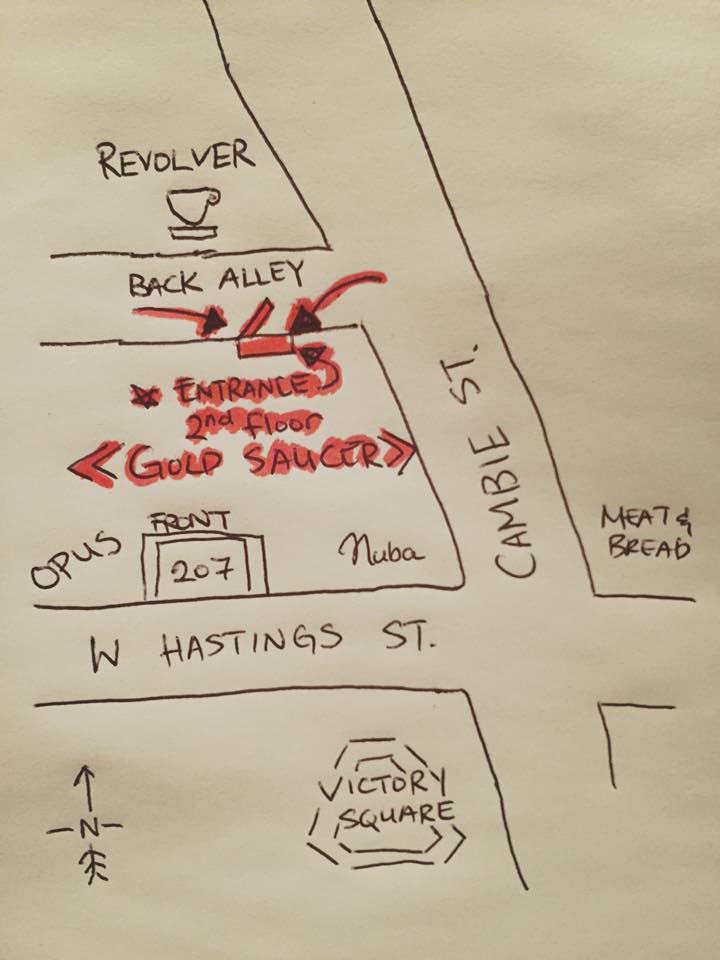 REVOLVER
BACK ALLEY
ENTRANCE
2nd floor
GOLD SAUCER
OPUS
FRONT
207
Nuba
CAMBIE ST.
MEAT &
BREAD
W HASTINGS ST.
VICTORY
SQUARE
N